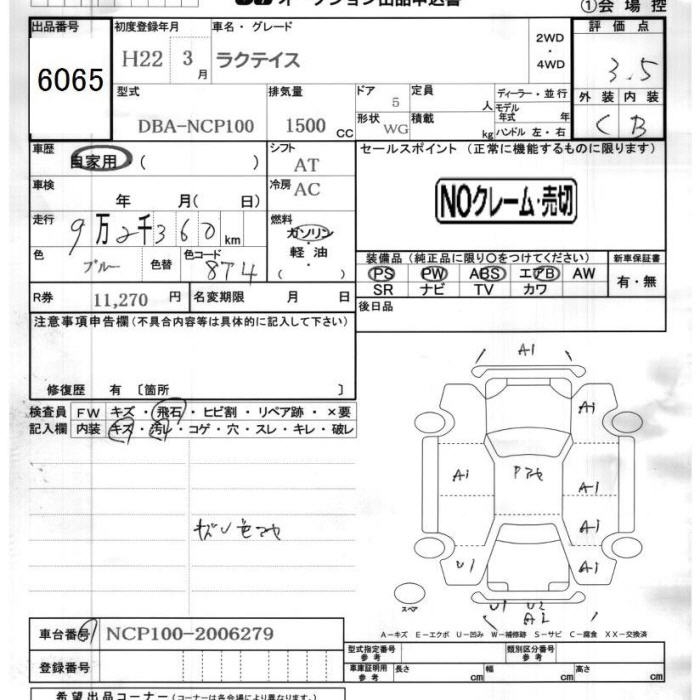 オークション出品申込書
①会場控
出品番号
6065
初度登録年月
H22 3月
車名・グレード
ラクテイス
2WD
・
4WD
評価点
3.5
型式
DBA-NCP100
排気量
1500 CC
ドア
5
定員
人
ディーラー・並行
形状
WG
積載
kg
モデル年式 年
ハンドル 左・右
外装 内装
C B
車歴
自家用・( )
シフト
AT
車検
年 月( 日)
冷房
AC
走行
9万2千360km
燃料
ガソリン
・
軽油
・
( )
色
ブルー
色替
色コード
874
R券 11,270 円
名変期限 月 日
セールスポイント (正常に機能するものに限ります)
NOクレーム・売切
装備品(純正品に限り○をつけてください)
新車保証書
PS PW ABS エアB AW
SR ナビ TV カワ
有・無
後日品
注意事項申告欄(不具合内容等は具体的に記入して下さい)
修復歴 有 〔箇所 〕
検査員 FW キズ・飛石・ヒビ割・リペア跡・×要
記入欄 内装 キズ・汚レ・コゲ・穴・スレ・キレ・破レ
A1
A1
A1
A1
A1
U1
A1
U1 U2
A2
スペア
A-キズ E-エクボ U-凹み W-補修跡 S-サビ C-腐食 XX-交換済
車台番号 NCP100-2006279
登録番号
型式指定番号
参考
類別区分番号
参考
車庫証明用
参考
長さ cm 幅 cm 高さ cm
希望出品コーナー(コースは各会場により異なります。)